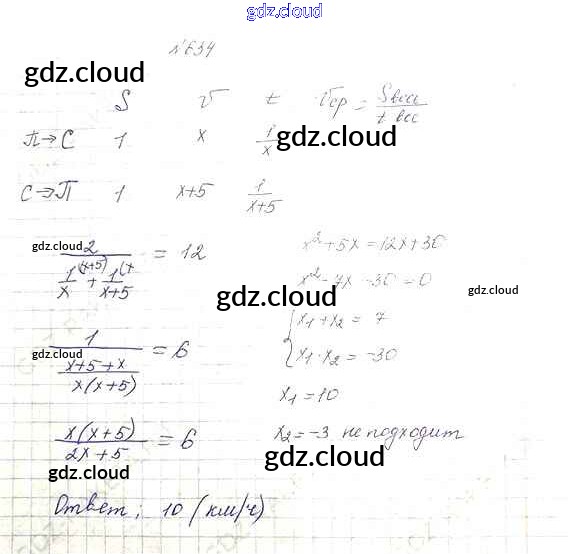 gdz.cloud
№634
gdz.cloud
S v t Vср = Sвсе / t вс
П→С 1 x 1/x gdz.cloud
С→П 1 x+5 1/(x+5)
gdz.cloud
2 / (1/x (x+5) + 1/(x+5) (x) = 12
x² + 5x = 12x + 30
x² - 7x - 30 = 0
gdz.cloud
gdz.cloud
{ x₁ + x₂ = 7
x₁ · x₂ = -30
1 / ((x+5+x) / (x(x+5))) = 6
gdz.cloud
x₁ = 10
x(x+5) / (2x+5) = 6
x₂ = -3 не подходит
gdz.cloud
gdz.cloud
Ответ: 10 (км/ч)